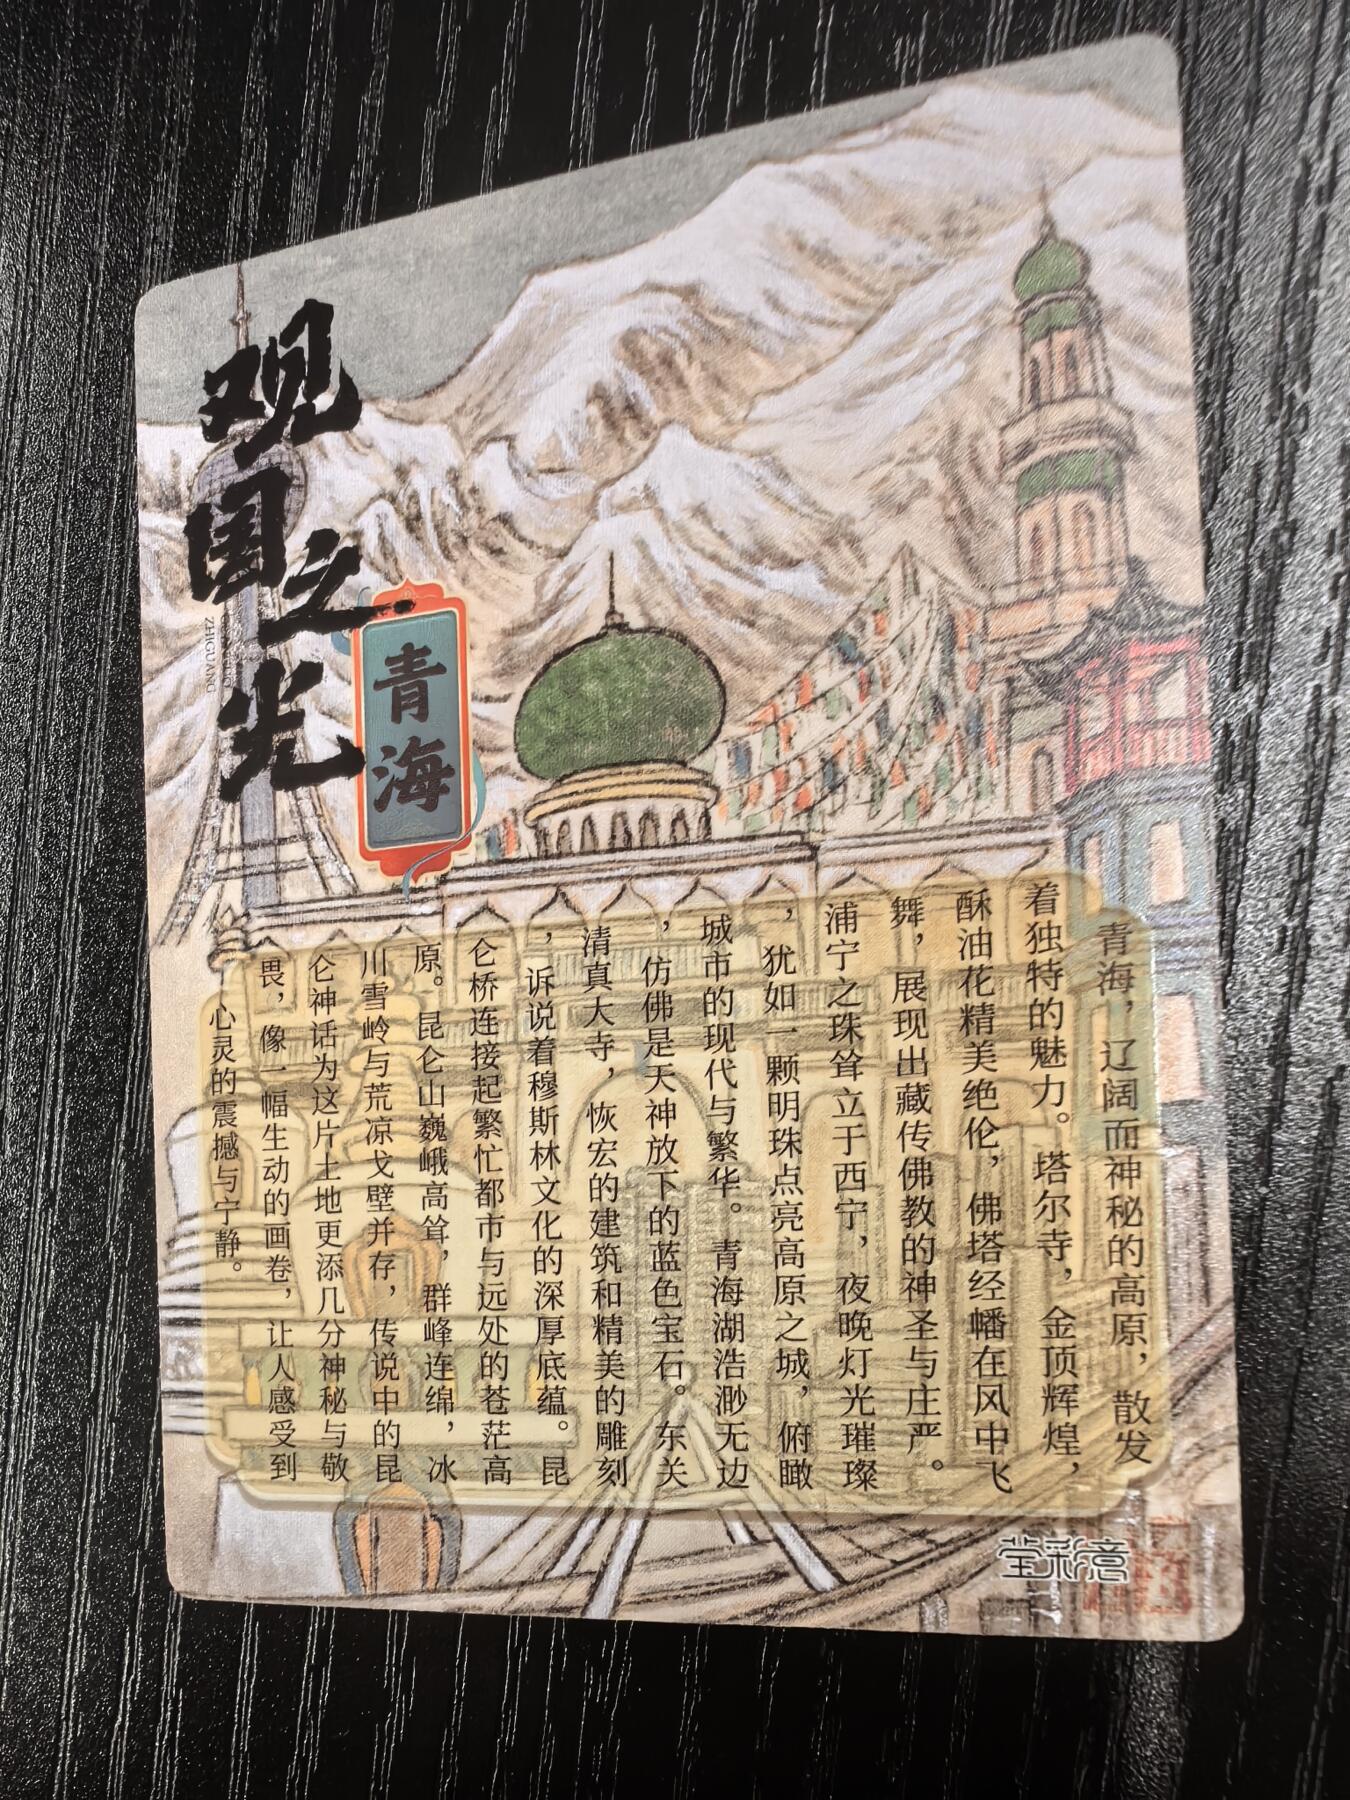 观国之光
ZHIGUANG
青海
青海，辽阔而神秘的高原，散发
着独特的魅力。塔尔寺，金顶辉煌，
酥油花精美绝伦，佛塔经幡在风中飞
舞，展现出藏传佛教的神圣与庄严。
浦宁之珠耸立于西宁，夜晚灯光璀璨
，犹如一颗明珠点亮高原之城，俯瞰
城市的现代与繁华。青海湖浩渺无边
，仿佛是天神放下的蓝色宝石。东关
清真大寺，恢宏的建筑和精美的雕刻
，诉说着穆斯林文化的深厚底蕴。昆
仑桥连接起繁忙都市与远处的苍茫高
原。昆仑山巍峨高耸，群峰连绵，冰
川雪岭与荒凉戈壁并存，传说中的昆
仑神话为这片土地更添几分神秘与敬
畏，像一幅生动的画卷，让人感受到
心灵的震撼与宁静。
莹彩意